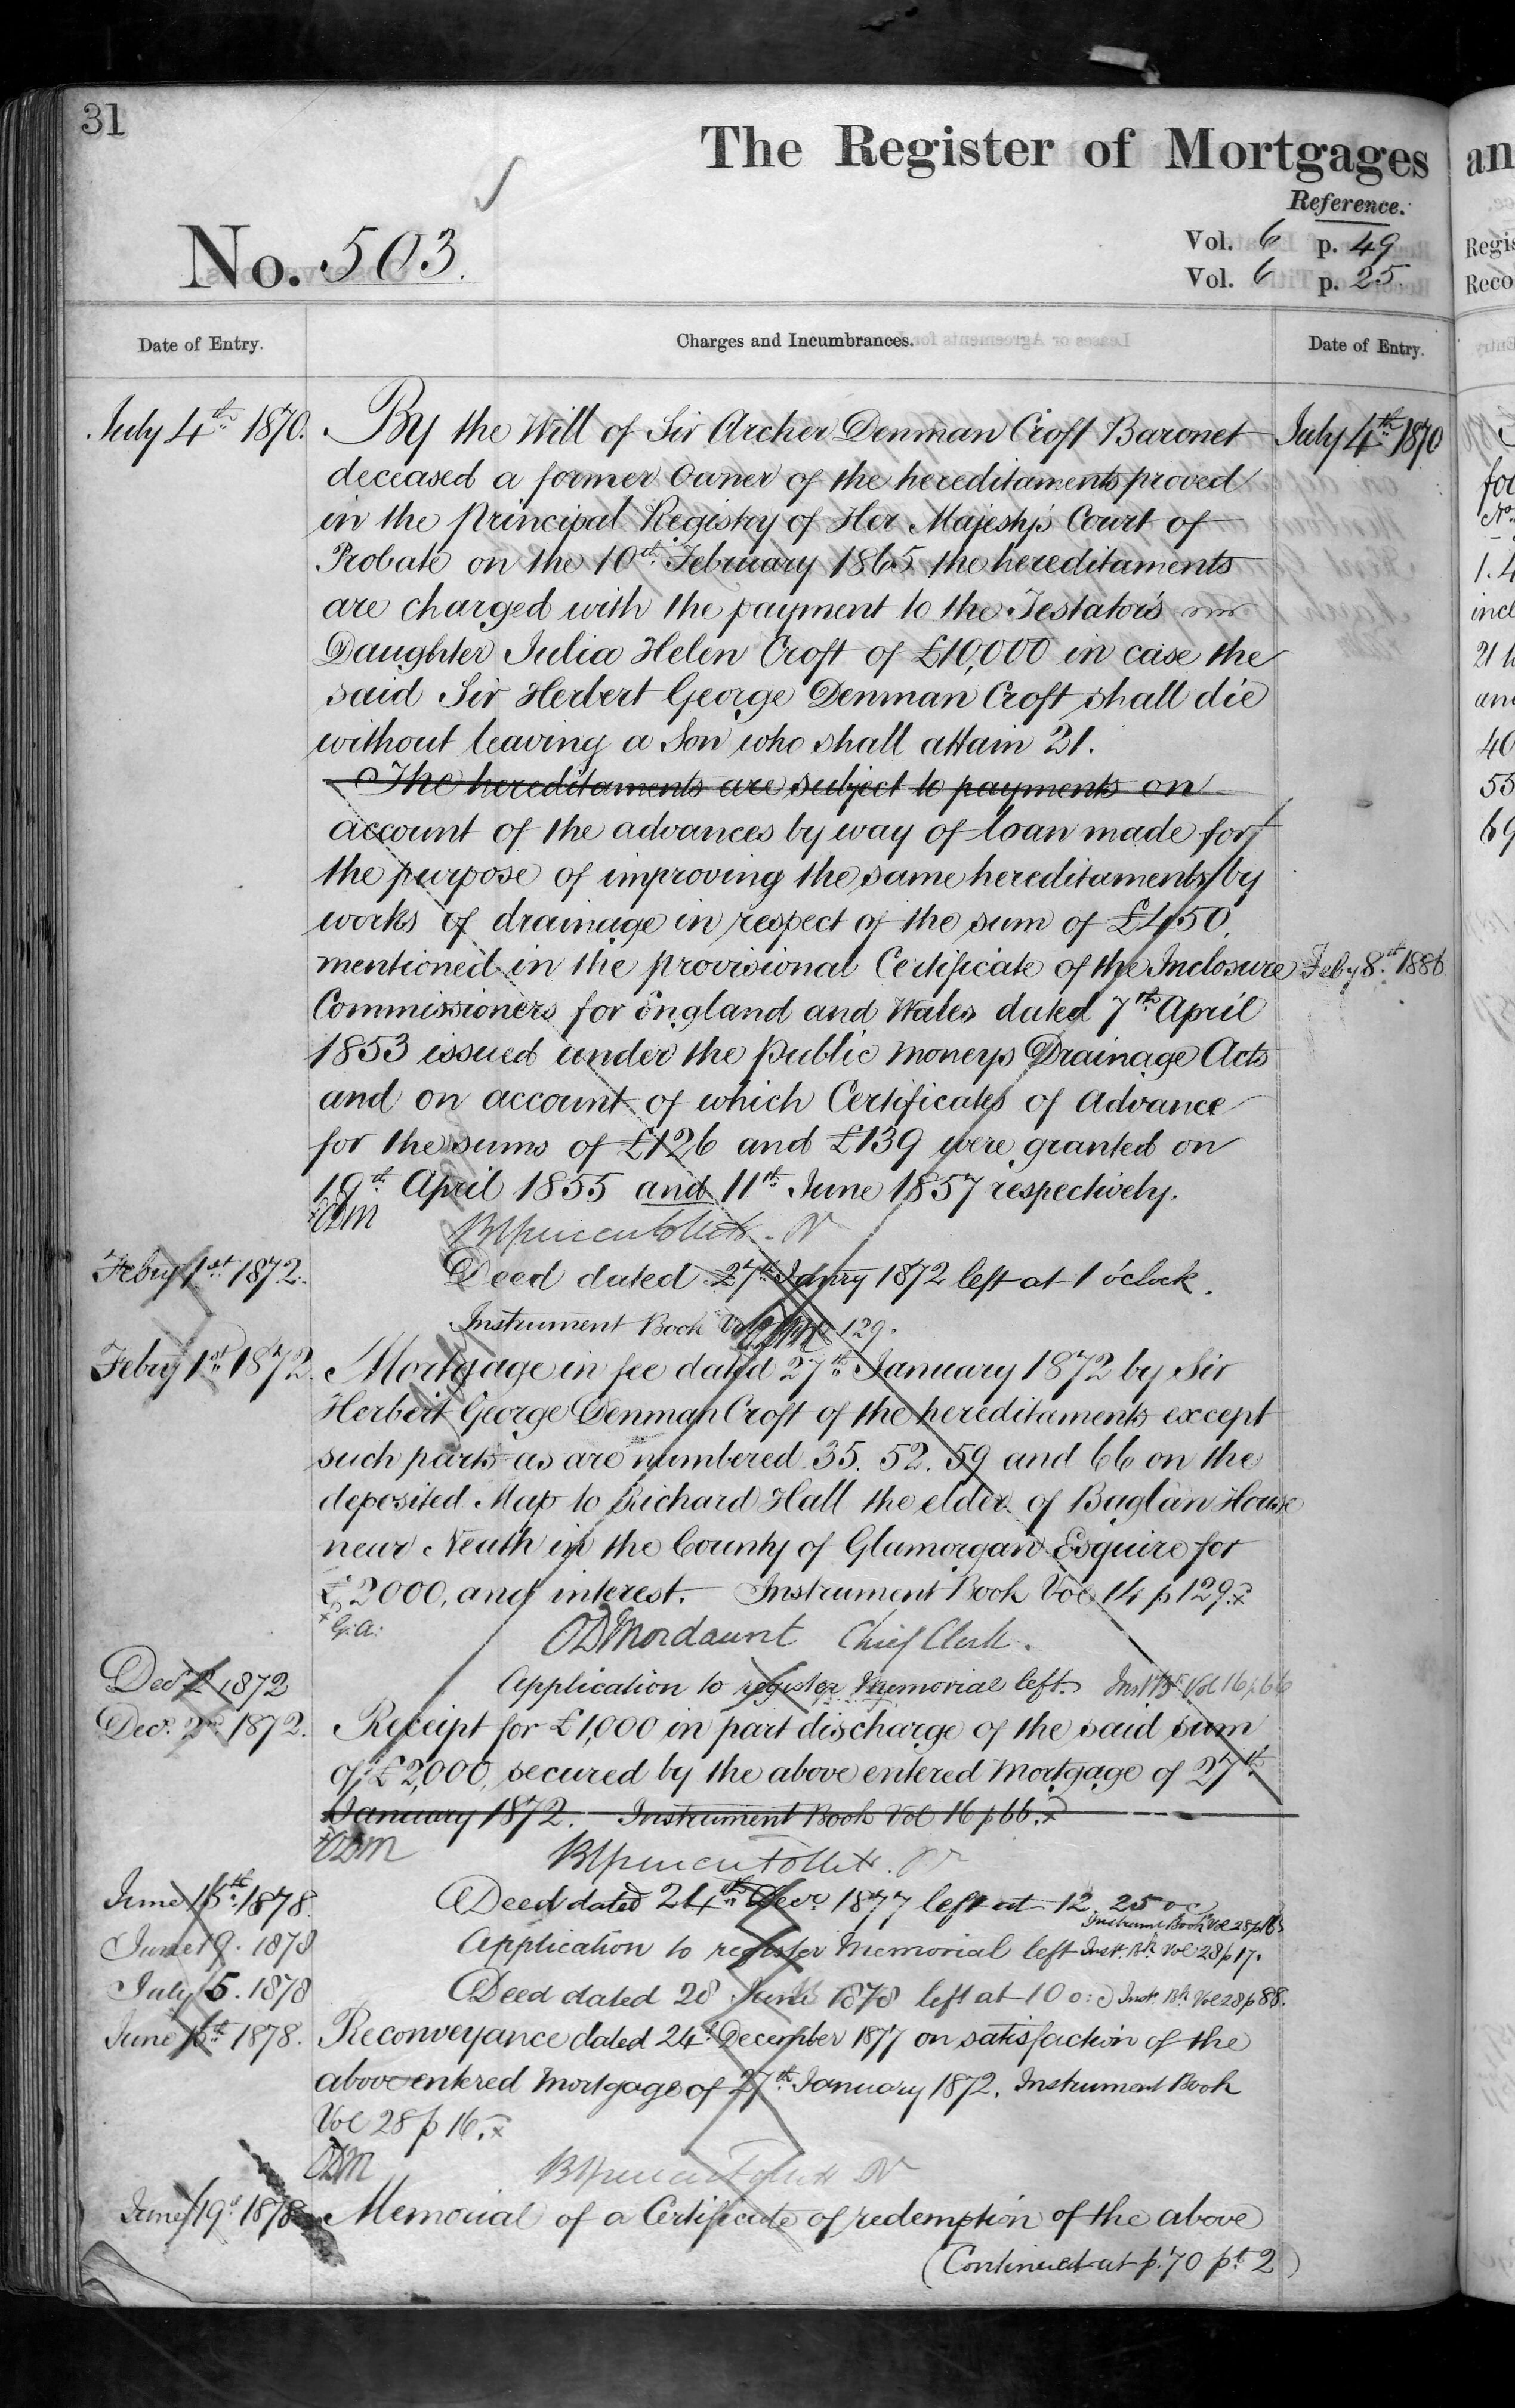 31
The Register of Mortgages
Reference.
No. 503.
Vol. 6 p. 49
Vol. 6 p. 25.
Date of Entry.
Charges and Incumbrances.
Date of Entry.
July 4th 1870. By the Will of Sir Archer Denman Croft Baronet July 4th 1870
deceased a former Owner of the hereditaments proved
in the Principal Registry of Her Majesty's Court of
Probate on the 10th February 1865 the hereditaments
are charged with the payment to the Testator's
Daughter Julia Helen Croft of £10,000 in case the
said Sir Herbert George Denman Croft shall die
without leaving a Son who shall attain 21.
The hereditaments are subject to payments on
account of the advances by way of loan made for
the purpose of improving the same hereditaments by
works of drainage in respect of the sum of £450,
mentioned in the provisional Certificate of the Inclosure Feby 8th 1886
Commissioners for England and Wales dated 7th April
1853 issued under the Public Moneys Drainage Acts
and on account of which Certificates of Advance
for the sums of £126 and £139 were granted on
19th April 1855 and 11th June 1857 respectively.
ODM
Feby 1st 1872. Deed dated 27th Janry 1872 left at 1 o'clock.
Instrument Book 129.
Feby 1st 1872. Mortgage in fee dated 27th January 1872 by Sir
Herbert George Denman Croft of the hereditaments except
such parts as are numbered 35. 52. 59 and 66 on the
deposited Map to Richard Hall the elder of Baglan House
near Neath in the County of Glamorgan Esquire for
£2000, and interest. Instrument Book Vol 14 p 129. x
x G.A. ODMordaunt Chief Clerk.
Decr 2 1872 Application to register Memorial left. Inst Bk Vol 16 p 66
Decr. 2nd 1872. Receipt for £1,000 in part discharge of the said sum
of £2,000, secured by the above entered Mortgage of 27th
January 1872. Instrument Book Vol 16 p 66. x
x ODM
June 15th 1878. Deed dated 24th Decr. 1877 left at 12.25 oc
Instrument Book Vol 28 p 16
June 19. 1878 Application to register Memorial left Inst. Bk Vol 28 p 17.
July 5. 1878 Deed dated 28 June 1878 left at 10 o:c Inst. Bk Vol 28 p 88.
June 15th 1878. Reconveyance dated 24th December 1877 on satisfaction of the
above entered Mortgage of 27th January 1872. Instrument Book
Vol 28 p 16. x
ODM
June 19th 1878 Memorial of a Certificate of redemption of the above
(Continued at p. 70 pt 2)